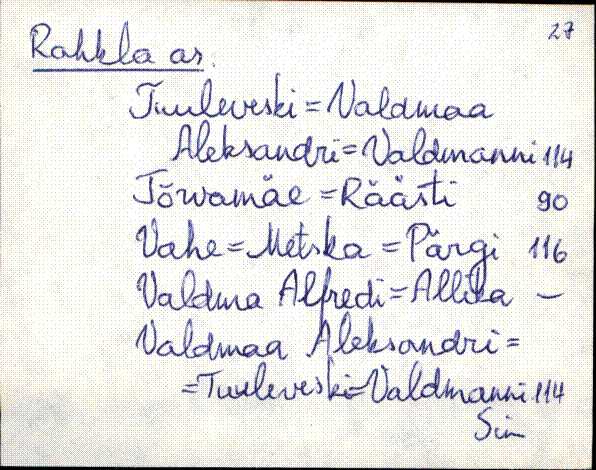 27
Rahkla as.
Tuuleveski = Valdmaa
Aleksandri = Valdmanni 114
Tõrvamäe = Räästi 90
Vahe = Metska = Pärgi 116
Valdma Alfredi = Allika —
Valdmaa Aleksandri =
= Tuuleveski = Valdmanni 114
Sim